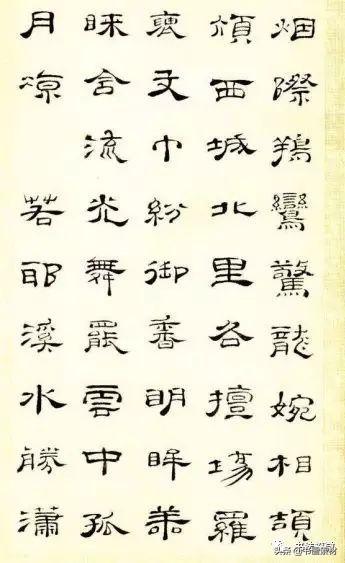 烟際鵷鸞驚龍婉相頡
頏西城北里各擅場羅
褎文巾紛御香明眸善
睞含流光舞罷雲中孤
月涼 若耶溪水勝瀟
头条 @书画素材